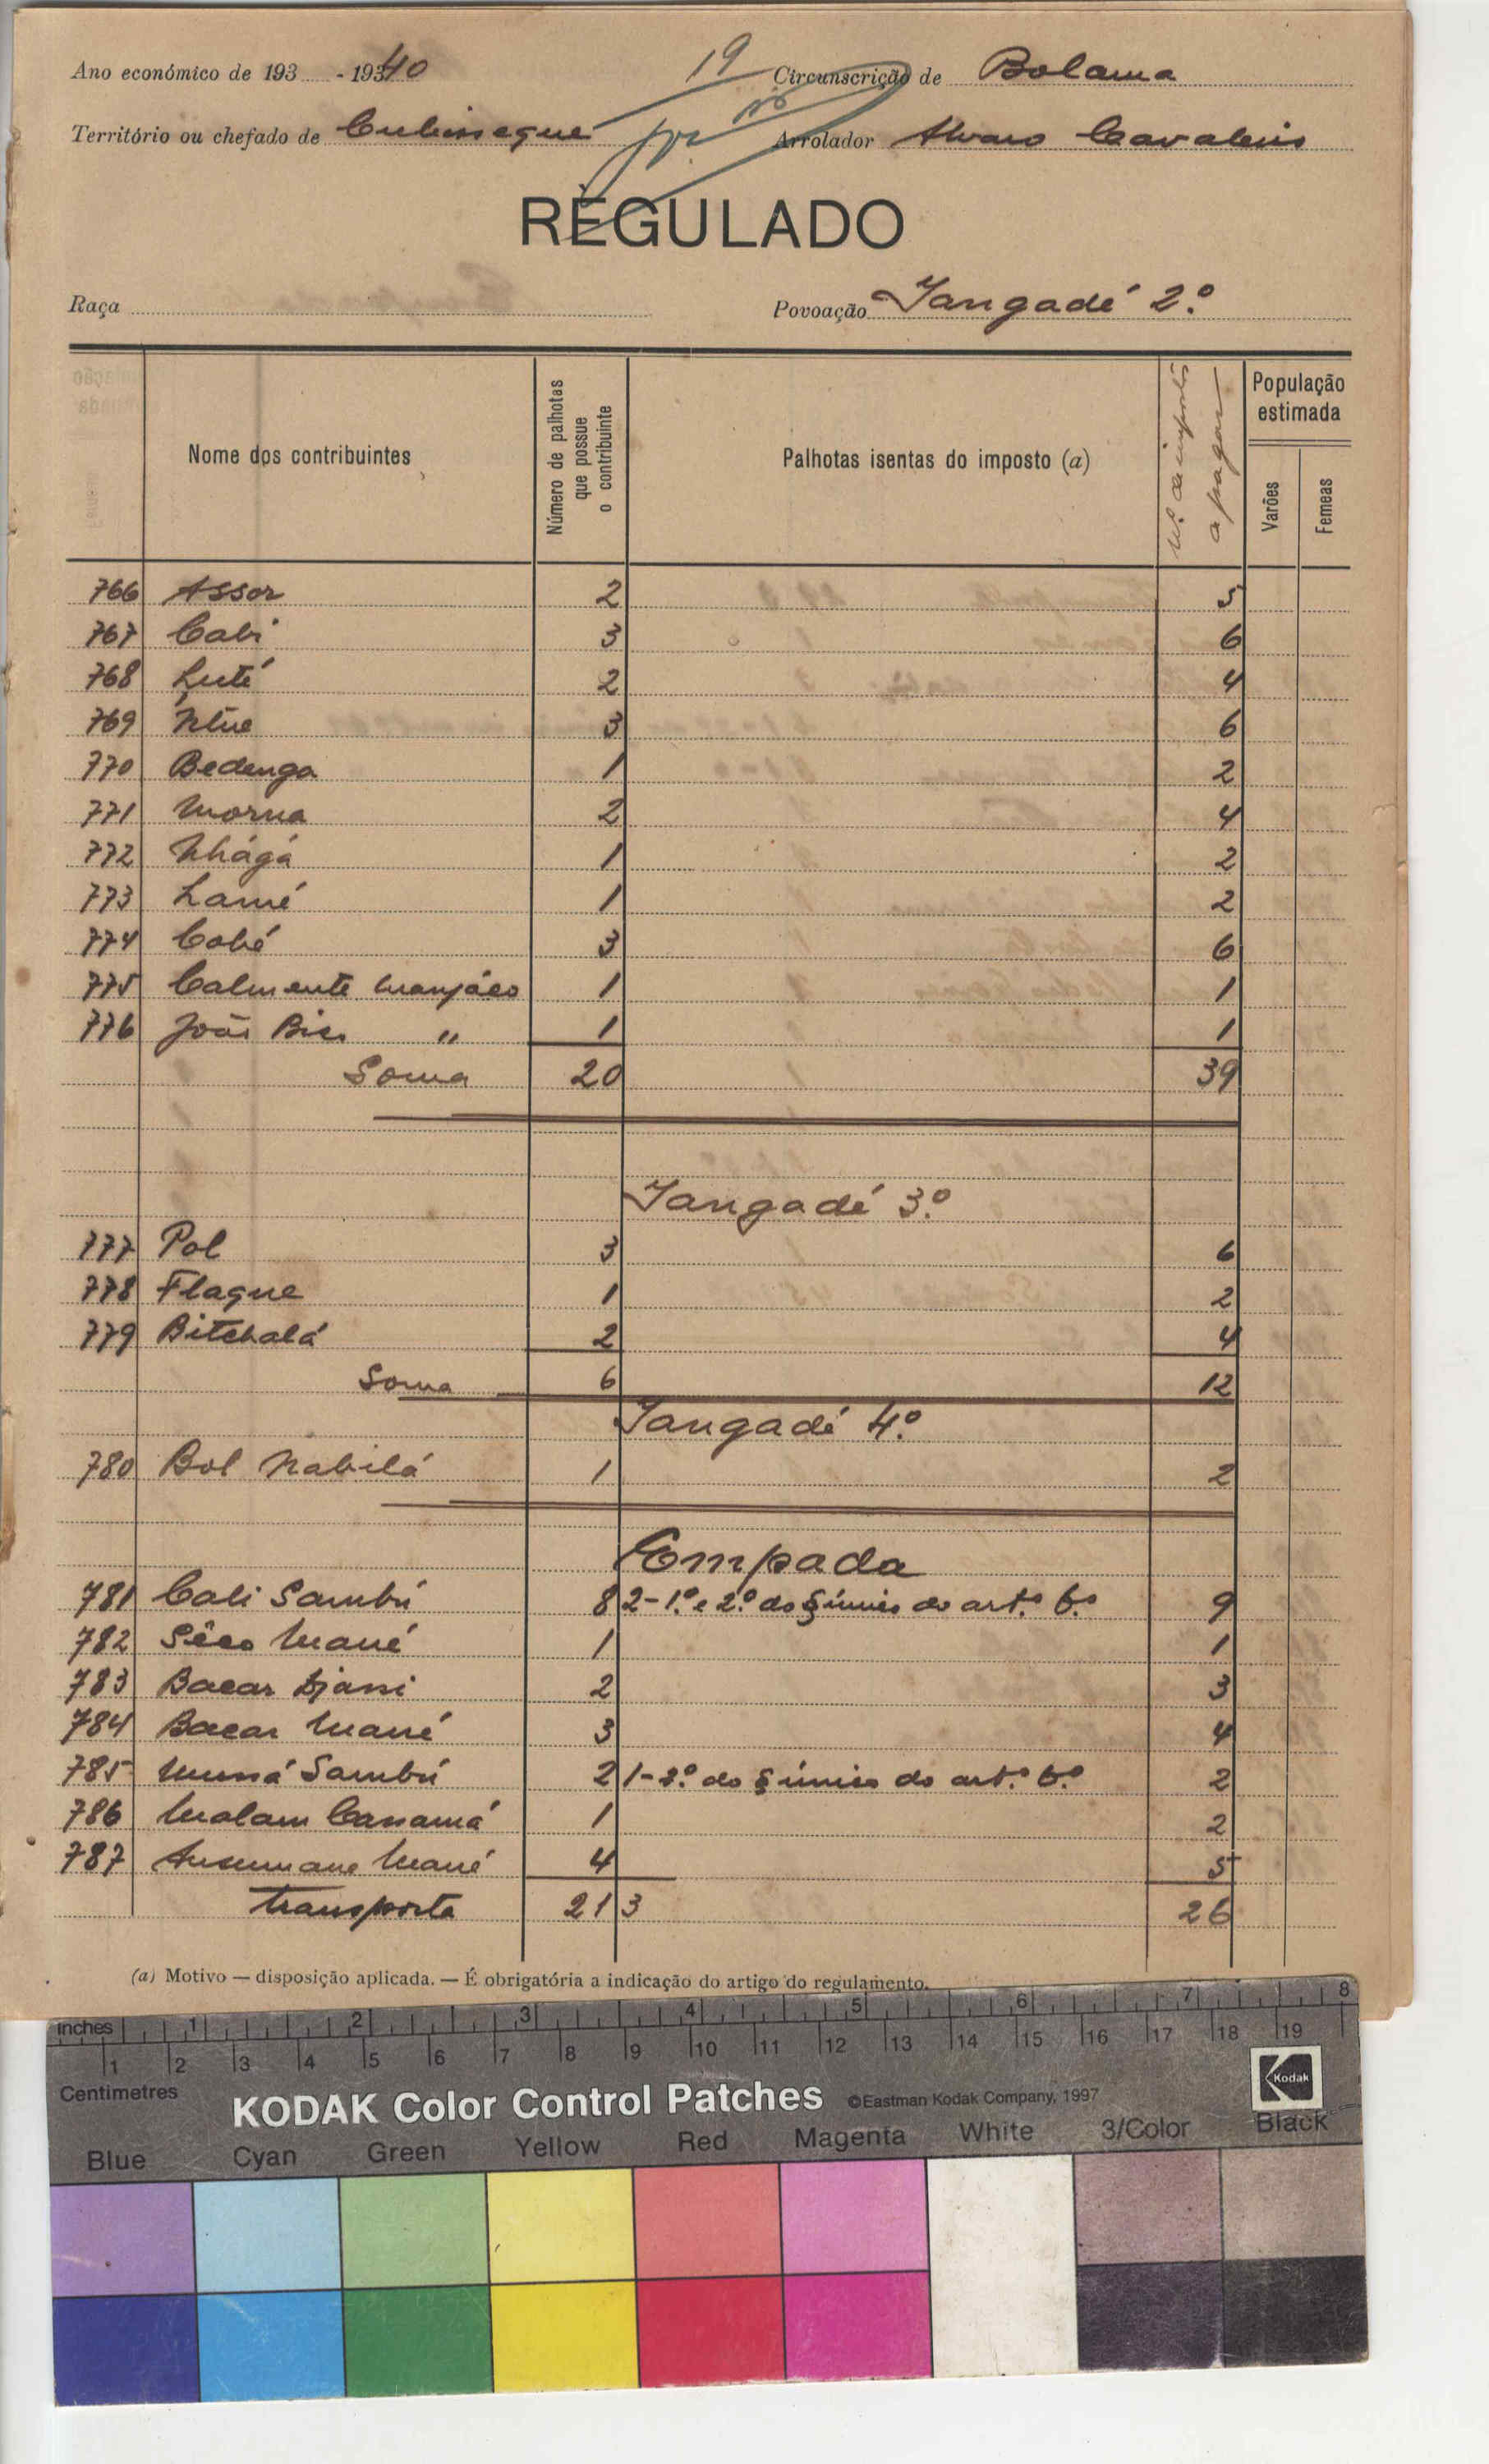 19
Ano económico de 193 - 1940 Circunscrição de Bolama
Território ou chefado de Cubisseque Arrolador Alvaro Cavaleiro
REGULADO
Raça Povoação Tangadé 2.º
Nome dos contribuintes Número de palhotas que possue o contribuinte Palhotas isentas do imposto (a) N.º de impostos a pagar População estimada
Varões Femeas
766 Assor 2 5
767 Cabi 3 6
768 Luté 2 4
769 3 6
770 Bedenga 1 2
771 Morna 2 4
772 Nhágá 1 2
773 Lamé 1 2
774 Cobé 3 6
775 Calmente Manjáco 1 1
776 João Bico " 1 1
Soma 20 39
Tangadé 3.º
777 Pol 3 6
778 Flaque 1 2
779 Bitchalá 2 4
Soma 6 12
Tangadé 4.º
780 Bol Nabilá 1 2
Empada
781 Cali Sambú 8 2-1.º e 2.º do § único do art.º 6.º 9
782 Sêco Mané 1 1
783 Bacar Djassi 2 3
784 Bacar Mané 3 4
785 Mussá Sambú 2 1-2.º do § único do art.º 6.º 2
786 Malam Cassamá 1 2
787 Ansumane Mané 4 5
Transporte 21 3 26
(a) Motivo — disposição aplicada. — É obrigatória a indicação do artigo do regulamento.
inches 1 2 3 4 5 6 7 8
1 2 3 4 5 6 7 8 9 10 11 12 13 14 15 16 17 18 19
Centimetres
KODAK Color Control Patches ©Eastman Kodak Company, 1997 Kodak
Blue Cyan Green Yellow Red Magenta White 3/Color Black